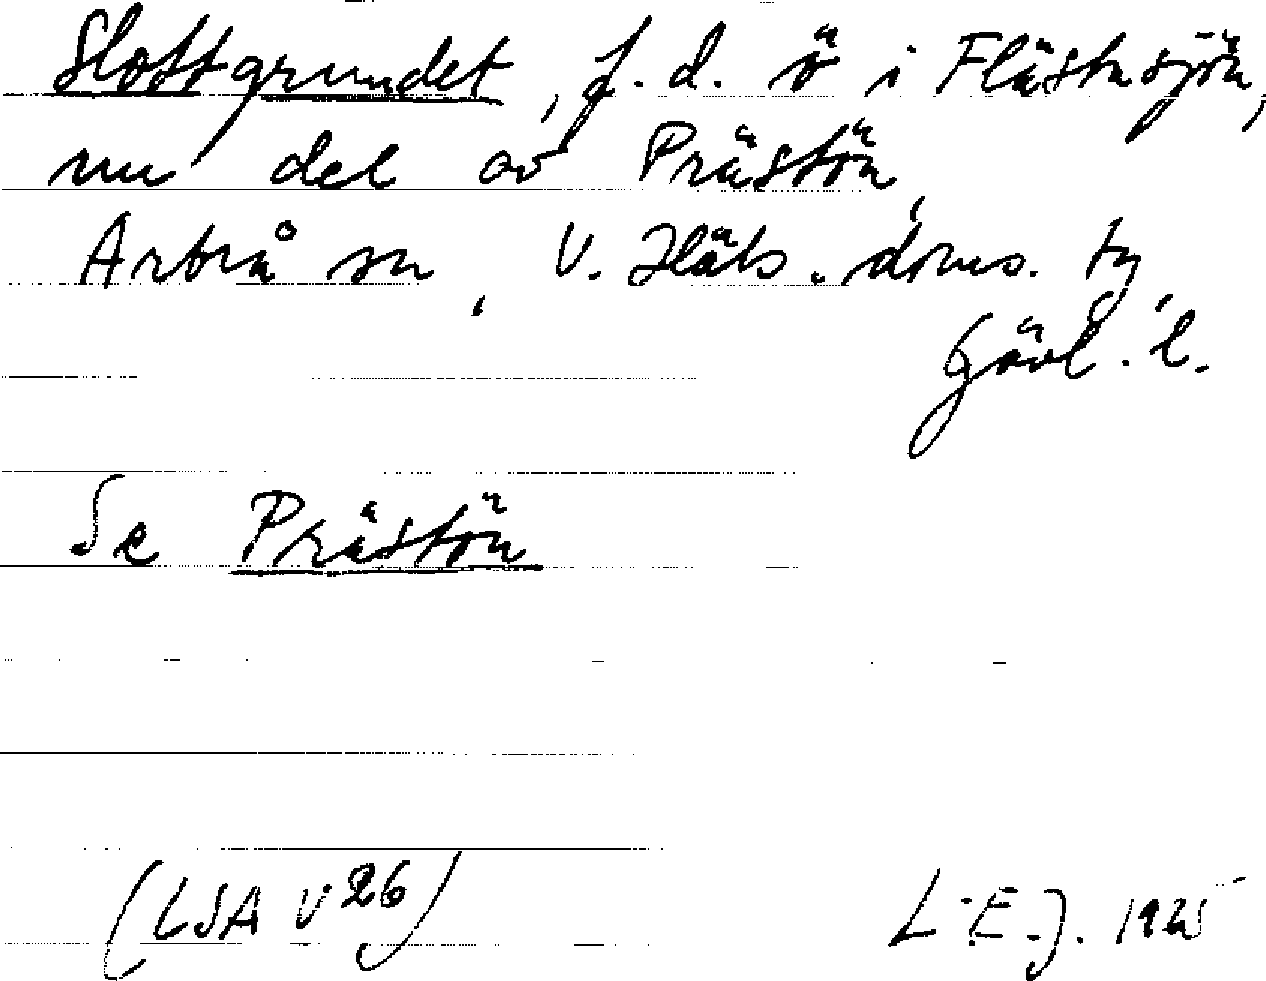 Slottgrundet, f.d. ö i Flästasjön,
nu del av Prästön,
Arbrå sn, V. Häls. doms. ty
Gävl. l.
Se Prästön
(LSA V 26)
L.E.J. 1925